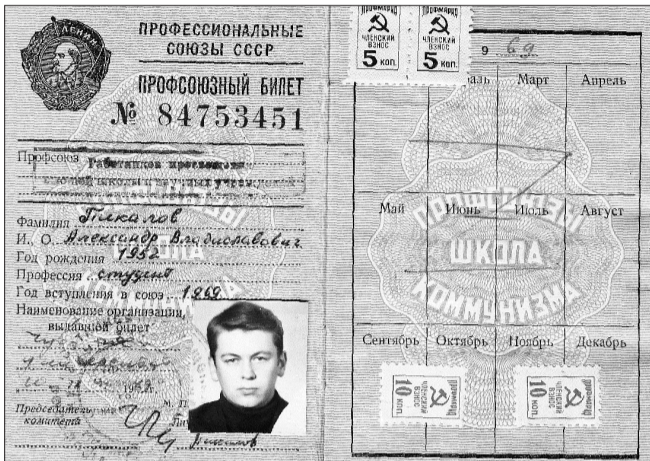 ЛЕНИН
ПРОФЕССИОНАЛЬНЫЕ
СОЮЗЫ СССР
ПРОФСОЮЗНЫЙ БИЛЕТ
№ 84753451
Профсоюз Работников просвещения
высшей школы и научных учреждений
Фамилия Пикалов
И., О. Александр Владиславович
Год рождения 1952
Профессия студент
Год вступления в союз 1969
Наименование организации,
выдавшей билет
М. П.
Председатель
комитета
ПРОФМАРКА
ЧЛЕНСКИЙ
ВЗНОС
5 КОП.
ПРОФМАРКА
ЧЛЕНСКИЙ
ВЗНОС
5 КОП.
9 69
Март Апрель
Май Июнь Июль Август
ПРОФСОЮЗЫ
ШКОЛА
КОММУНИЗМА
Сентябрь Октябрь Ноябрь Декабрь
ПРОФМАРКА
ЧЛЕНСКИЙ
ВЗНОС
10 КОП.
ПРОФМАРКА
ЧЛЕНСКИЙ
ВЗНОС
10 КОП.